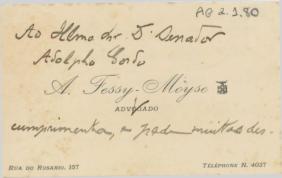 AG 2.1.80
Ao Illmo Snr Dr. Senador
Adolpho Gordo
A. Fessy-Moyse
ADVOGADO
cumprimenta, e pede muitas des-
RUA DO ROSARIO, 157 TELÉPHONE N. 4037